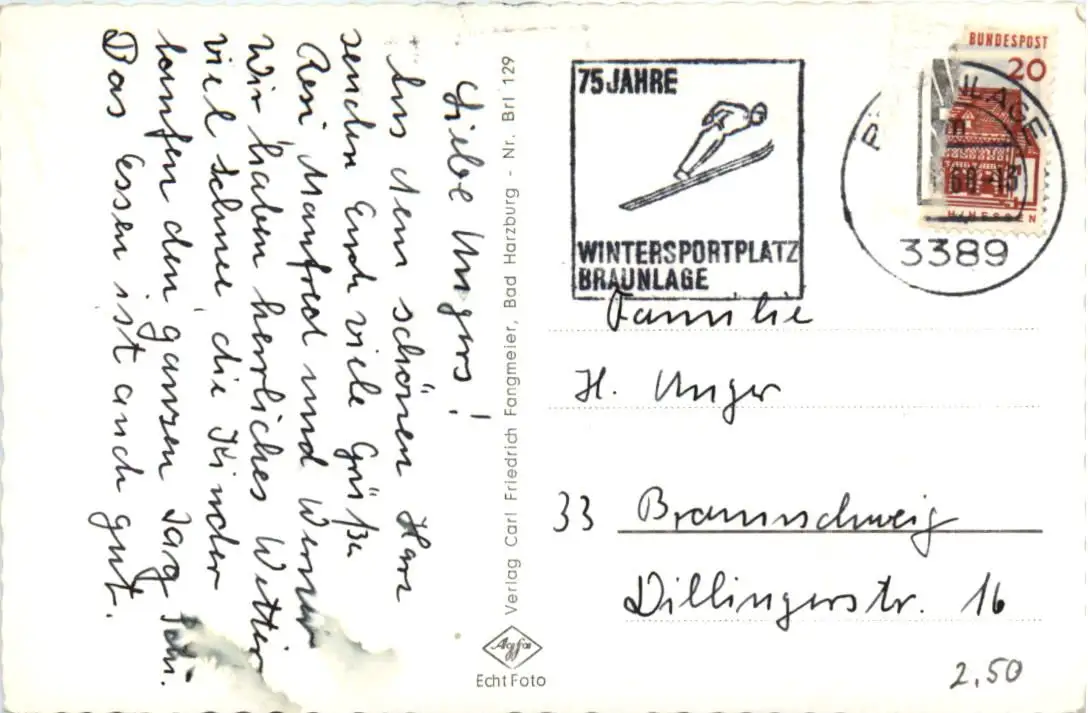 Liebe Ungers!
Aus dem schönen Harz
senden Euch viele Grüße
Resi Manfred und Werner
Wir haben herrliches Wetter
viel Schnee die Kinder
laufen den ganzen Tag Schi.
Das Essen ist auch gut.
Verlag Carl Friedrich Fangmeier, Bad Harzburg - Nr. Brl 129
Agfa
Echt Foto
75 JAHRE
WINTERSPORTPLATZ
BRAUNLAGE
BUNDESPOST
20
3389
Familie
H. Unger
33 Braunschweig
Dillingerstr. 16
2,50